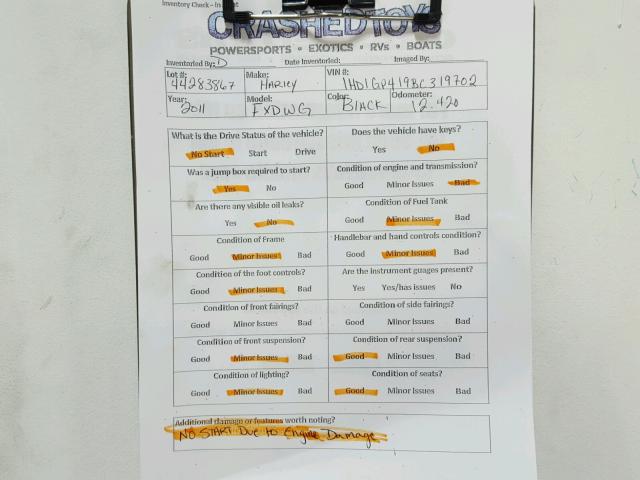 CRASHEDTOYS
POWERSPORTS • EXOTICS • RVs • BOATS
Inventoried By: Date Inventoried: Imaged By:
Lot #: 44283867 Make: HARley VIN #: 1HD1GP419BC319702
Year: 2011 Model: FXDWG Color: BlACK Odometer: 12.420
What is the Drive Status of the vehicle? Does the vehicle have keys?
No Start Start Drive Yes No
Was a jump box required to start? Condition of engine and transmission?
Yes No Good Minor Issues Bad
Are there any visible oil leaks? Condition of Fuel Tank
Yes No Good Minor Issues Bad
Condition of Frame Handlebar and hand controls condition?
Good Minor Issues Bad Good Minor Issues Bad
Condition of the foot controls? Are the instrument guages present?
Good Minor Issues Bad Yes Yes/has issues No
Condition of front fairings? Condition of side fairings?
Good Minor Issues Bad Good Minor Issues Bad
Condition of front suspension? Condition of rear suspension?
Good Minor Issues Bad Good Minor Issues Bad
Condition of lighting? Condition of seats?
Good Minor Issues Bad Good Minor Issues Bad
Additional damage or features worth noting?
NO START Due to Engine Damage